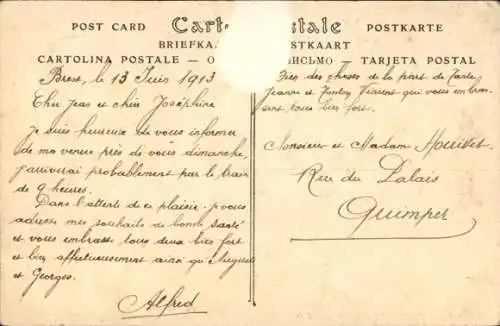 POST CARD Carte Postale POSTKARTE
BRIEFKA STKAART
CARTOLINA POSTALE — O TARJETA POSTAL
Brest, le 13 Juin 1913
Cher Jean et chère Joséphine
Je suis heureux de vous informer
de ma venue près de vous dimanche,
j'arriverai probablement par le train
de 9 heures.
Dans l'attente de ce plaisir je vous
adresse mes souhaits de bonne santé
et vous embrasse tous deux bien fort
et bien affectueusement ainsi qu'Auguste
et Georges.
Alfred
des choses de la part de
Jeanne et qui vous em bras-
sent tous bien fort.
Monsieur et Madam
Rue du Palais
Quimper